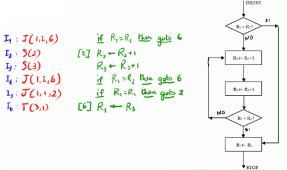 I₁: J(1,2,6) if R₁=R₂ then goto 6
I₂: S(2) [2] R₂ ← R₂+1
I₃: S(3) R₃ ← R₃+1
I₄: J(1,2,6) if R₁=R₂ then goto 6
I₅: J(1,1,2) if R₁=R₁ then goto 2
I₆: T(3,1) [6] R₁ ← R₃
INIZIO
R₁=R₂?
SI
NO
R₂←R₂+1
R₃←R₃+1
R₁=R₂?
NO
SI
R₁←R₃
STOP